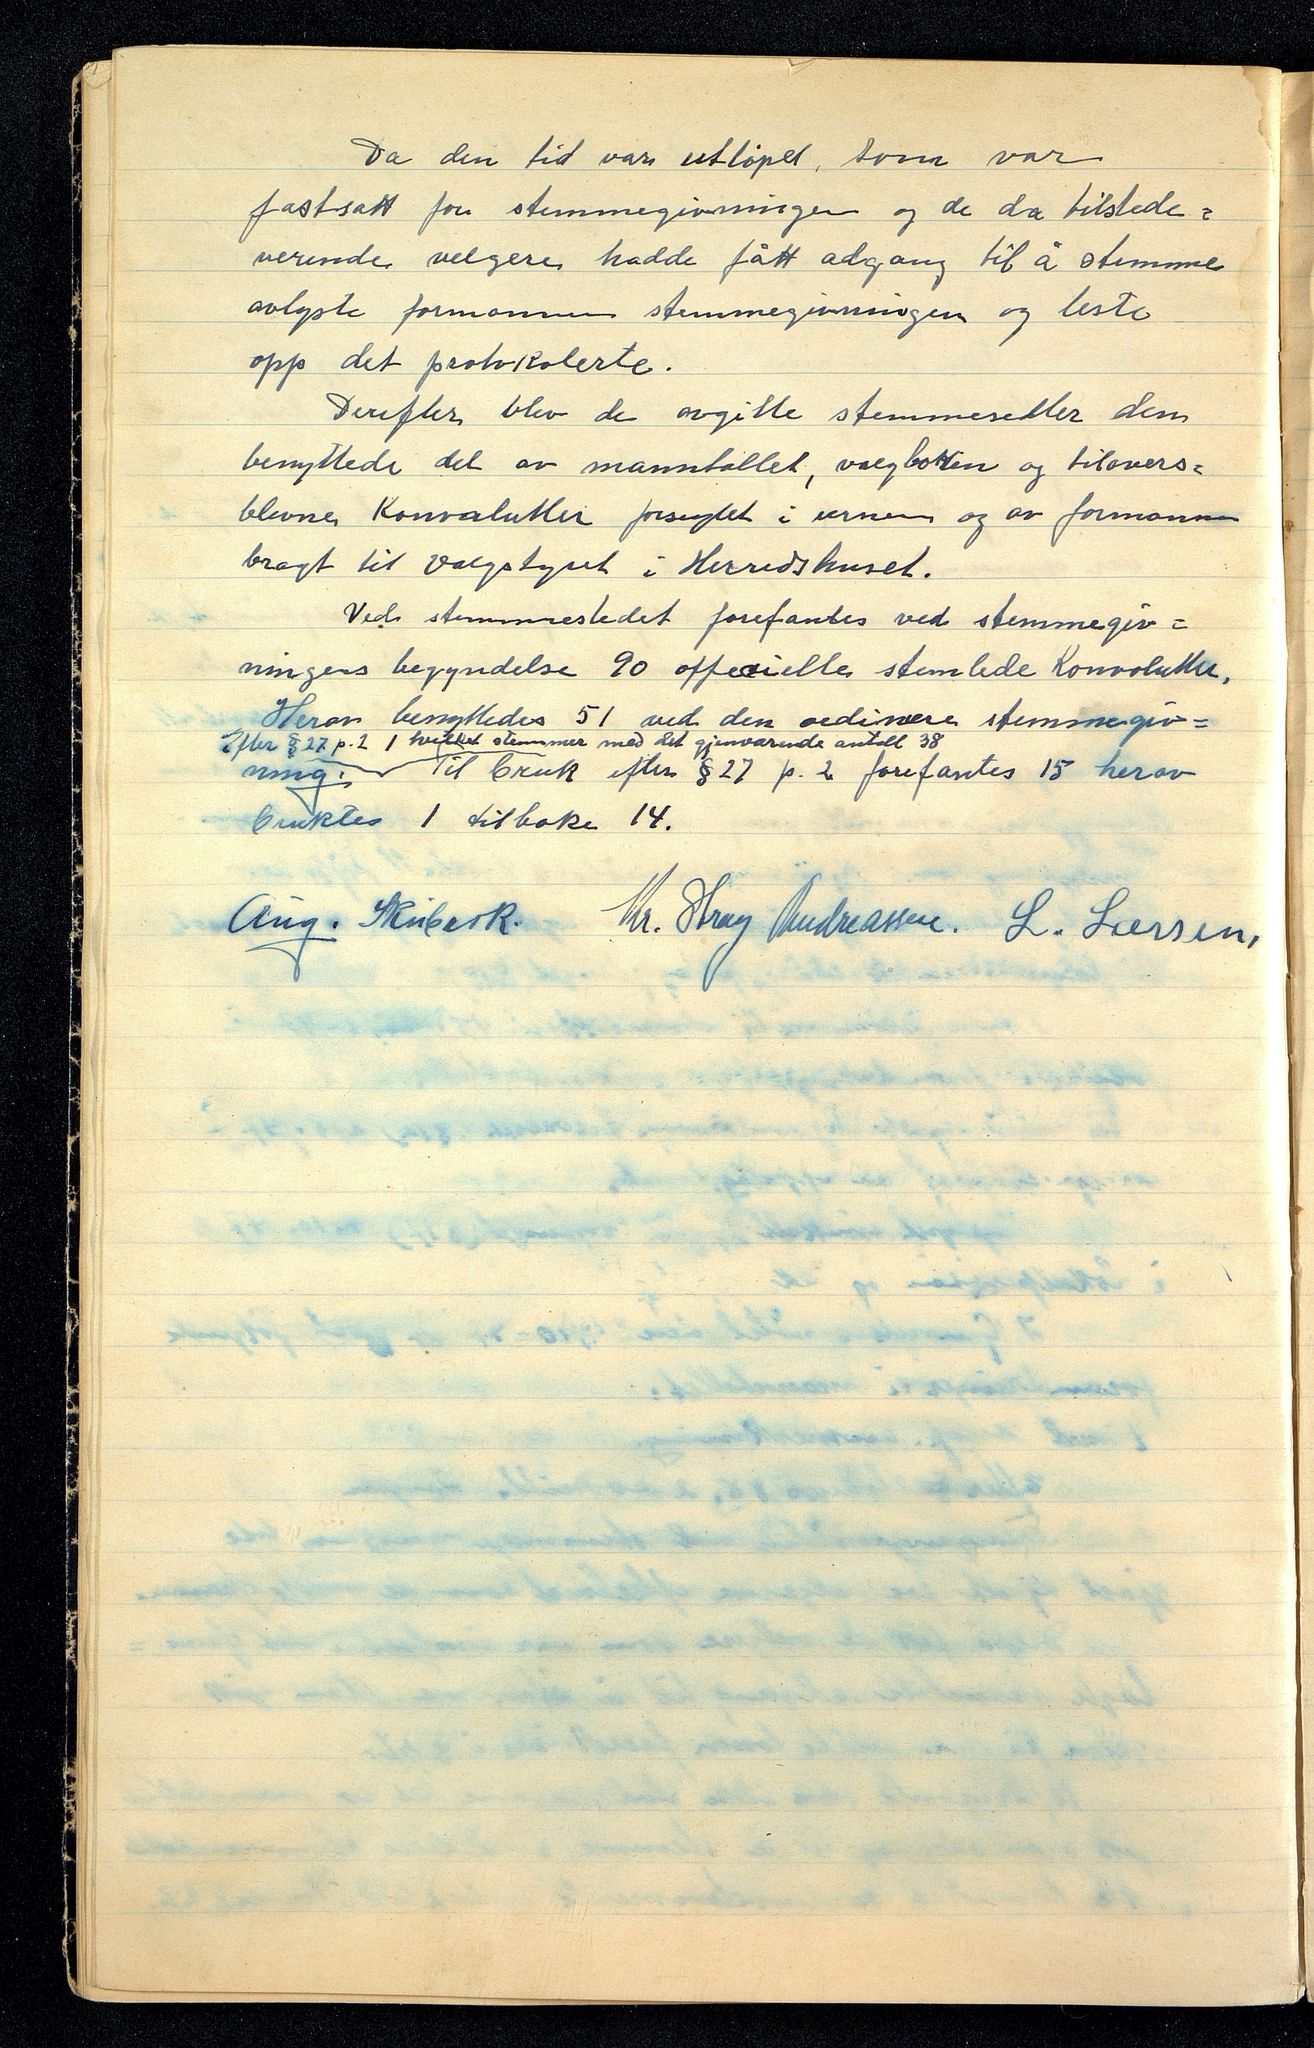 Da den tid var utløpet, som var
fastsatt for stemmegivningen og de da tilstede=
verende velgere hadde fått adgang til å stemme
avlyste formannen stemmegivningen og leste
opp det protokolerte.
Derefter blev de avgitte stemmesedler den
benyttede del av manntallet, valgboken og tilovers=
blevne Konvolutter forseglet i urnen og av formannen
bragt til Valgstyret i Herredshuset.
Ved stemmestedet forefantes ved stemmegiv=
ningens begyndelse 90 officielle stemlede Konvolutter,
Herav benyttedes 51 ved den ordinære stemmegiv=
Efter §27 p.2 1 hvilket stemmer med det gjenværende antall 38
ning. Til bruk efter §27 p. 2 forefantes 15 herav
bruktes 1 tilbake 14.
Aug. Skibeok. Kr. Stray Andreassen. L. Larssen,